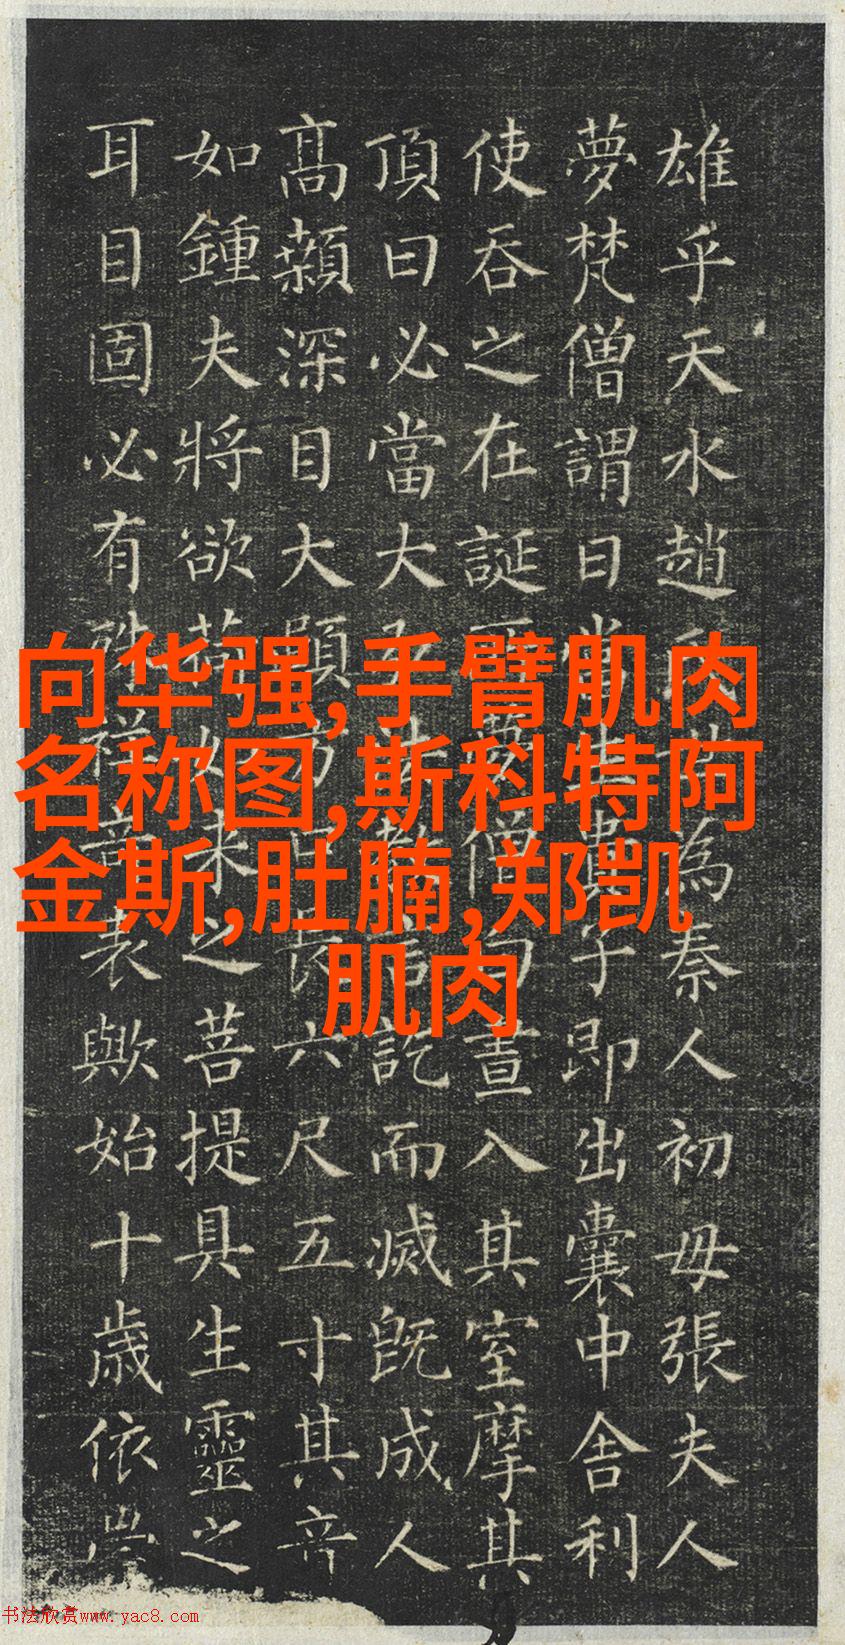 雄乎天水趙為秦人初母張夫人
夢梵僧謂曰當生貴子即出囊中舍利
使吞之在誕夢僧晝入其室摩其
頂曰必當大法教言訖而滅既成人
高顙深目大頤方口長六尺五寸其音
如鍾夫將欲荷如來之菩提具生靈之
耳目固必有殊祥奇表歟始十歲依
向华强,手臂肌肉
名称图,斯科特阿
金斯,肚腩,郑凯
肌肉
书法欣赏www.yac8.com